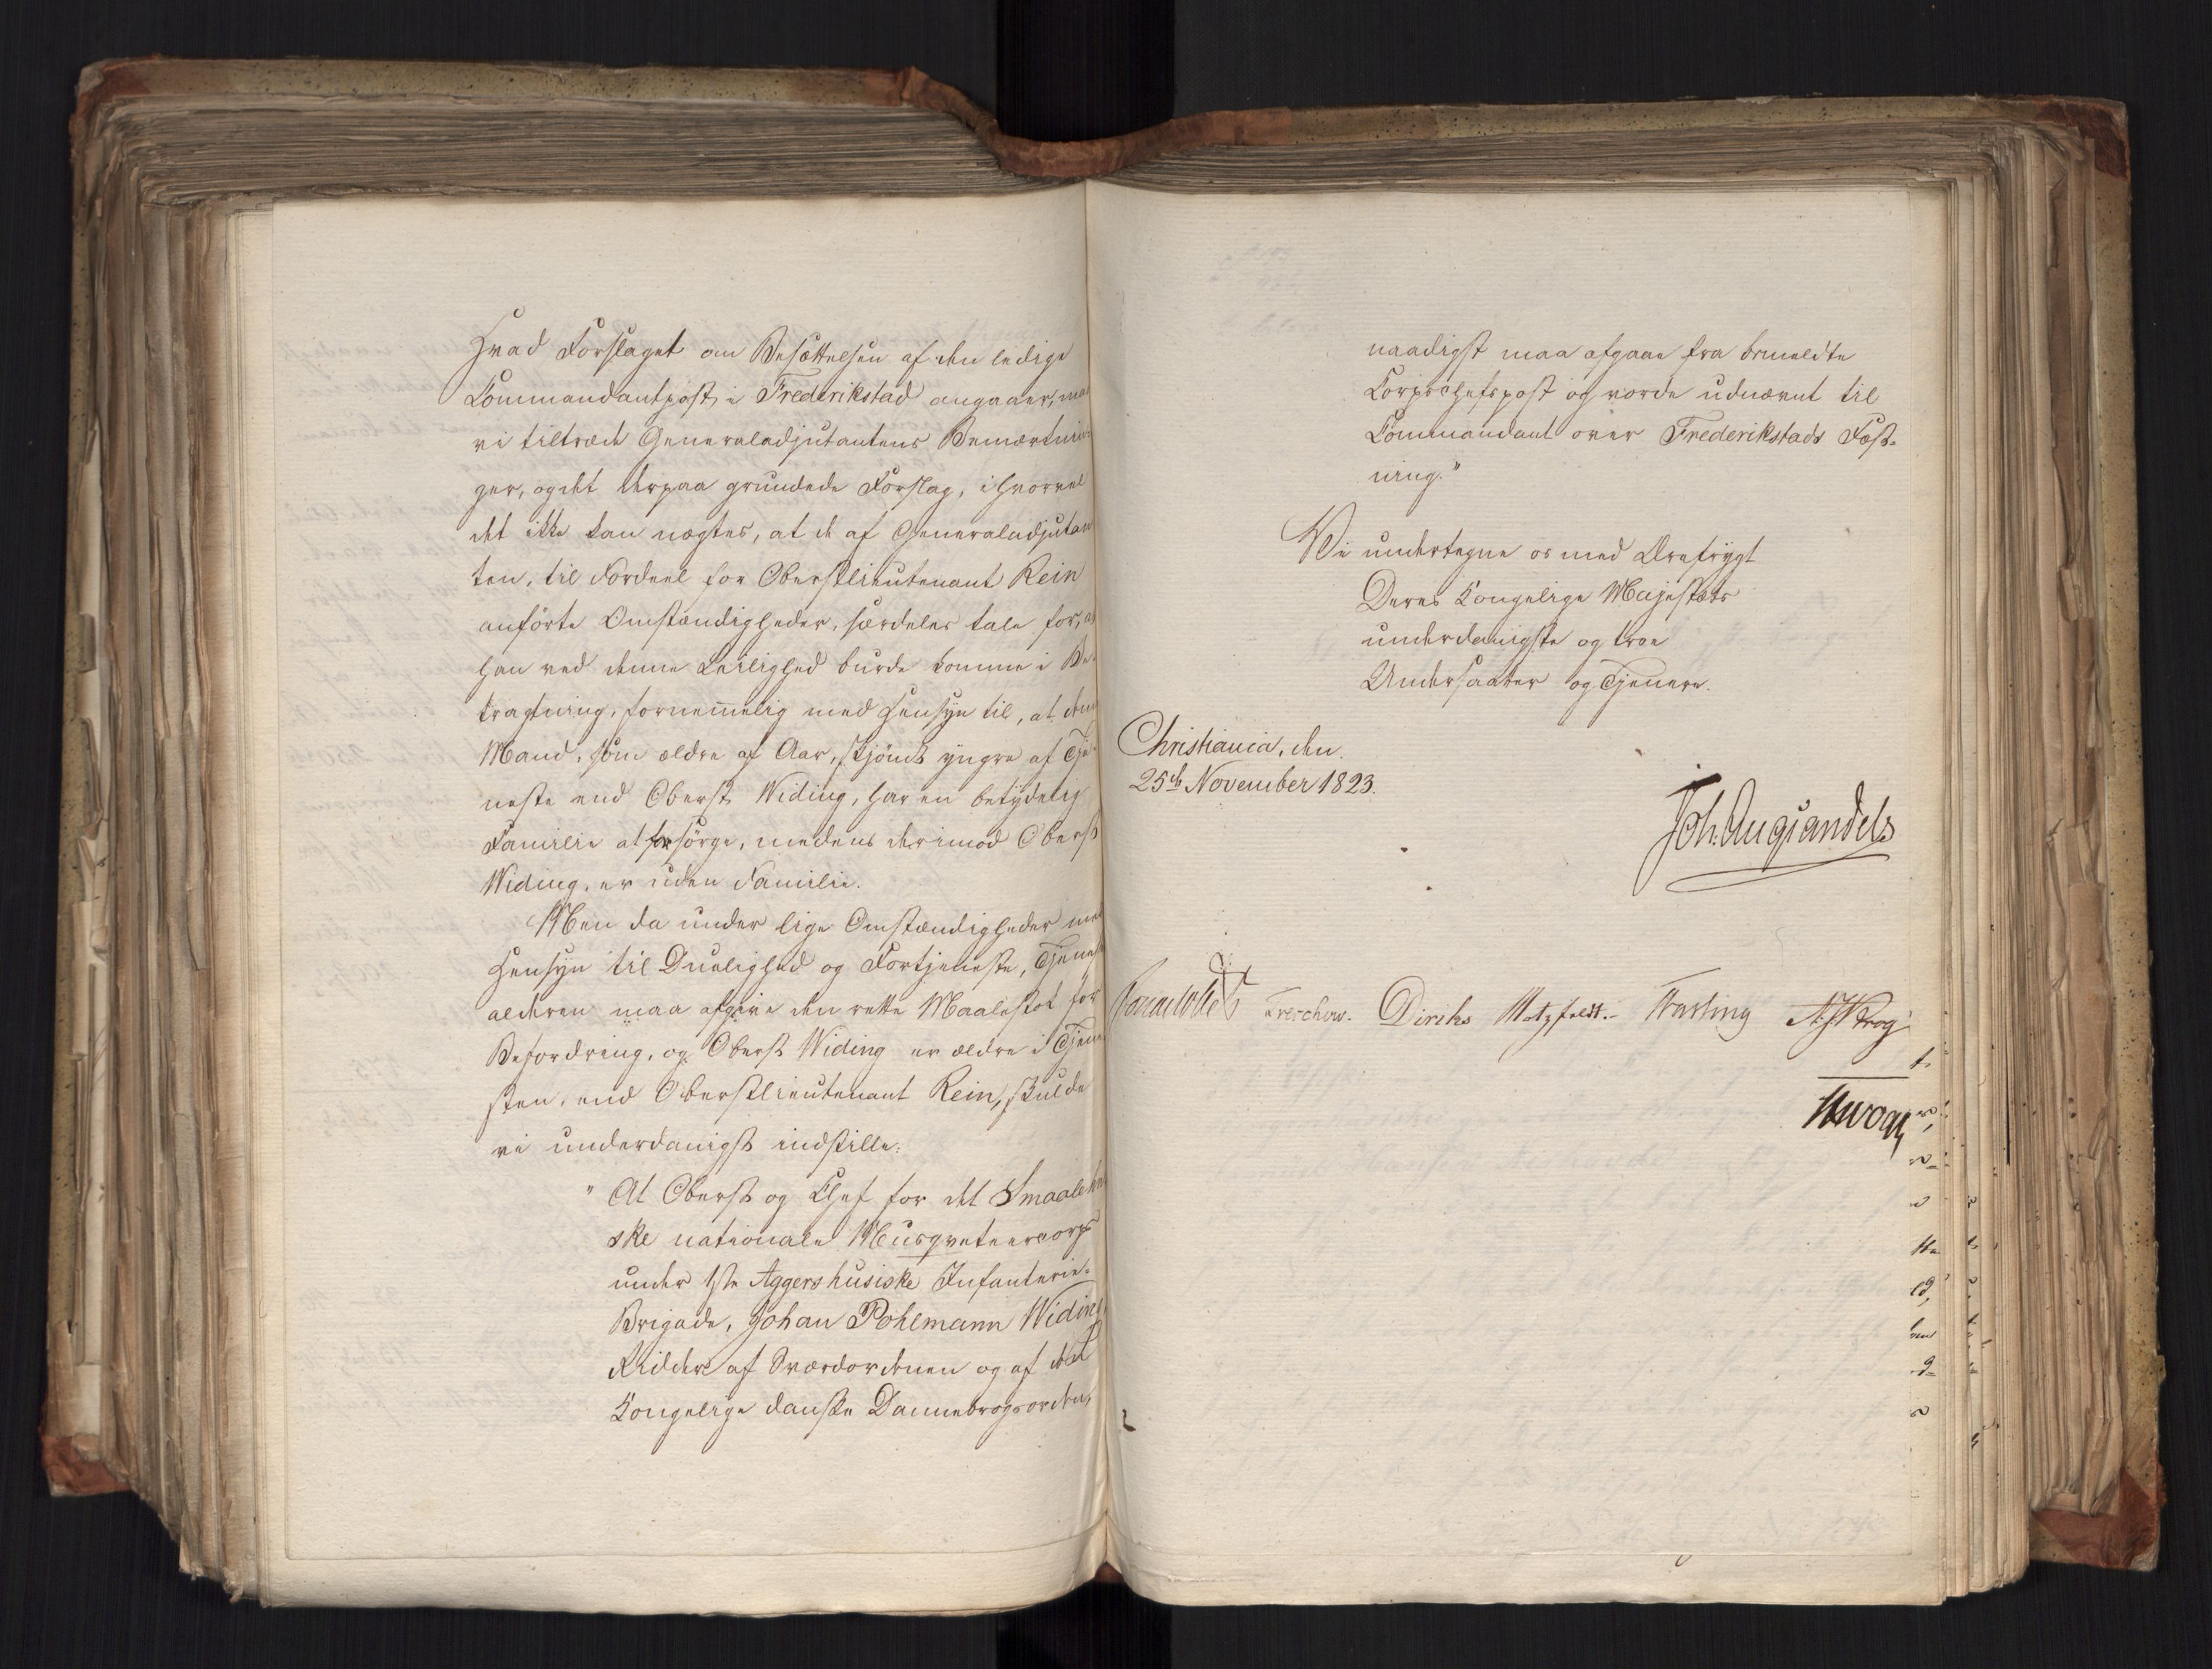 Hvad Forslaget om Besættelsen af den ledige
Commandantpost i Frederikstad angaaer, maa
vi tiltræde Generaladjutantens Bemærknin-
ger, og det derpaa grundede Forslag, ihvorvel
det ikke kan nægtes, at de af Generaladjutan
ten, til Fordeel for Oberstlieutenant Rein
anførte Omstændigheder, særdeles tale for, at
han ved denne Leilighed burde komme i Be-
tragtning, fornemmelig med Hensyn til, at denne
Mand, som ældre af Aar, skjøndt yngre af Tje-
neste end Oberst Widing, har en betydelig
Familie at forsørge, medens derimod Oberst
Widing, er uden Familie.
Men da under lige Omstændigheder med
Hensyn til Duelighed og Fortjeneste, Tjenest
alderen maa afgive den rette Maalestok for
Befordring, og Oberst Widing er ældre i Tjene
sten, end Oberstlieutenant Rein, skulde
vi underdanigst indstille:
"At Oberst og Chef for det Smaalehn
ske nationale Musqveteercorps
under 1ste Aggershusiske Infanterie-
Brigade, Johan Pohlmann Widing
Ridder af Sværdordenen og af den
Kongelige danske Dannebrogsorden,
naadigst maa afgaae fra bemeldte
Corpschefspost og vorde udnævnt til
Commandant over Frederikstads Fæst-
ning."
Vi undertegne os med Ærefrygt
Deres Kongelige Majestæts
underdanigste og troe
Undersaatter og Tjenere.
Christiania, den
25de November 1823.
Joh. Aug Sandels
Treschow. Diriks Motzfeldt. Fasting